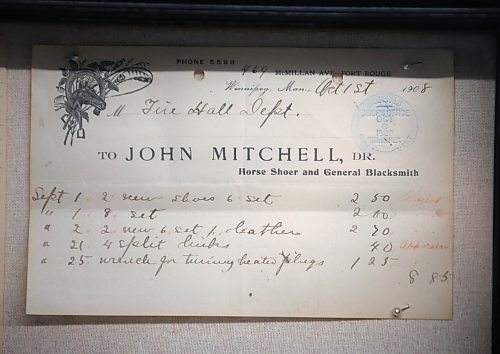 PHONE 5588
469 McMILLAN AVE. FORT ROUGE
Winnipeg, Man. Oct 1st 1908
M Fire Hall Dept.
TO JOHN MITCHELL, DR.
Horse Shoer and General Blacksmith
Sept 1. 2 new shoes 6 set 2 50
" 1. 8 set 2 00
" 2. 2 new 6 set 1 leather 2 70
" 21. 4 split links 40
" 25 wrench for turning heater plugs 1 25
8 85